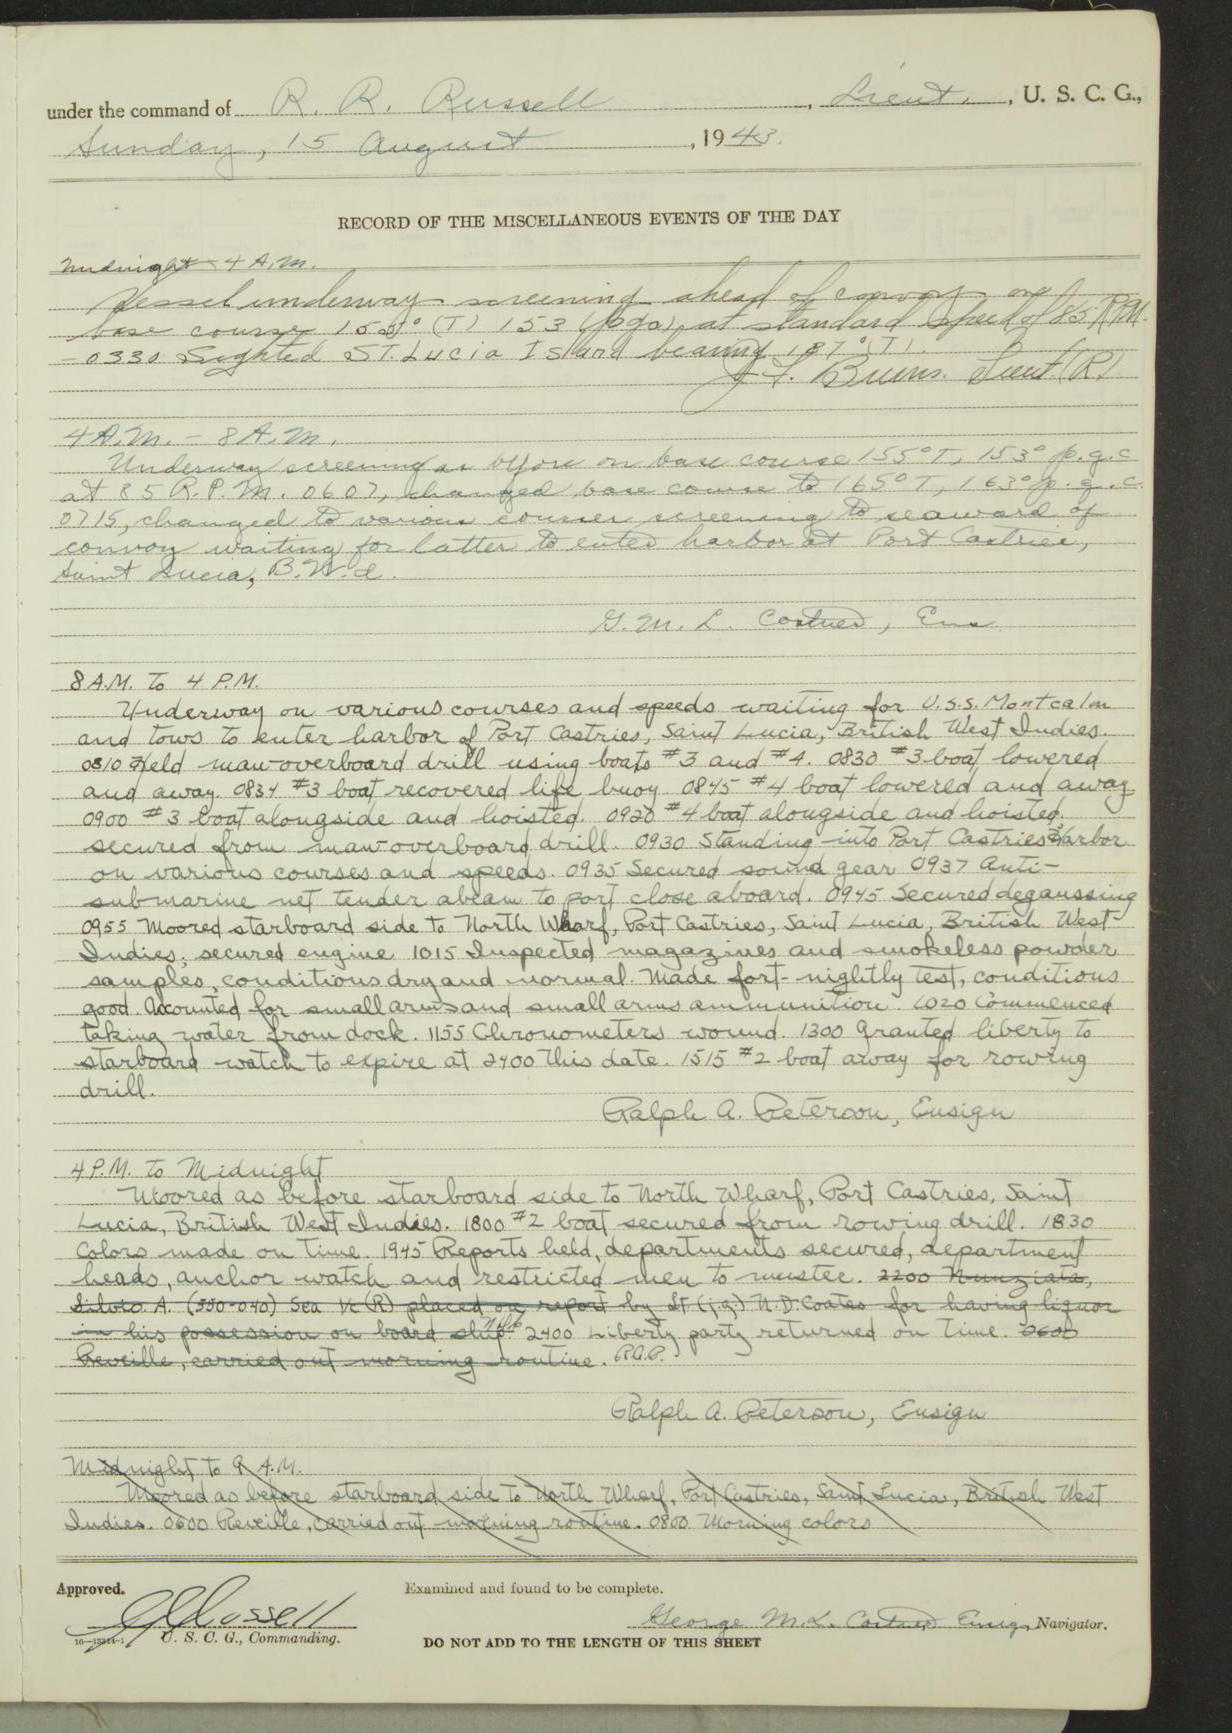 under the command of R. R. Russell, Lieut., U. S. C. G.,
Sunday, 15 August, 1943.
RECORD OF THE MISCELLANEOUS EVENTS OF THE DAY
Midnight - 4 A.M.
Vessel underway screening ahead of convoy on
base course 155° (T) 153 (pgc) at standard speed of 85 RPM.
- 0330 Sighted ST. Lucia Island bearing 187° (T).
J. F. Burns. Lieut (R)
4 A.M. - 8 A.M.
Underway screening as before on base course 155° T, 153° p.g.c
at 85 R.P.M. 0607, changed base course to 165° T, 163° p.g.c.
0715, changed to various courses screening to seaward of
convoy waiting for latter to enter harbor at Port Castries,
Saint Lucia, B.W.I.
G. M. L. Costner, Ens
8 A.M. To 4 P.M.
Underway on various courses and speeds waiting for U.S.S. Montcalm
and tows to enter harbor of Port Castries, Saint Lucia, British West Indies.
0810 Held man-overboard drill using boats #3 and #4. 0830 #3 boat lowered
and away. 0834 #3 boat recovered life buoy 0845 #4 boat lowered and away
0900 #3 boat alongside and hoisted. 0920 #4 boat alongside and hoisted,
secured from man-overboard drill. 0930 Standing into Port Castries Harbor
on various courses and speeds. 0935 Secured sound gear 0937 Anti-
submarine net tender abeam to port close aboard. 0945 Secured degaussing
0955 Moored starboard side to North Wharf, Port Castries, Saint Lucia, British West
Indies; secured engine 1015 Inspected magazines and smokeless powder
samples, conditions dry and normal. Made fort-nightly test, conditions
good. Accounted for small arms and small arms ammunition. 1020 Commenced
taking water from dock. 1155 Chronometers wound. 1300 Granted liberty to
starboard watch to expire at 2400 this date. 1515 #2 boat away for rowing
drill.
Ralph A. Peterson, Ensign
4 P.M. to Midnight
Moored as before starboard side to North Wharf, Port Castries, Saint
Lucia, British West Indies. 1800 #2 boat secured from rowing drill. 1830
Colors made on time. 1945 Reports held, departments secured, department
heads, anchor watch and restricted men to muster. 2200 Nunziata,
Silvio A. (550-040) Sea 1/c (R) placed on report by Lt (j.g.) N.D. Coates for having liquor
in his possession on board ship. 2400 Liberty party returned on time. 0600
Reveille, carried out morning routine. R.A.P.
Ralph A. Peterson, Ensign
Midnight to 8 A.M.
Moored as before starboard side to North Wharf, Port Castries, Saint Lucia, British West
Indies. 0600 Reveille, carried out morning routine. 0800 Morning colors
Approved.
Examined and found to be complete.
R R Russell
George M.L. Costner Ensign, Navigator.
U. S. C. G., Commanding.
DO NOT ADD TO THE LENGTH OF THIS SHEET